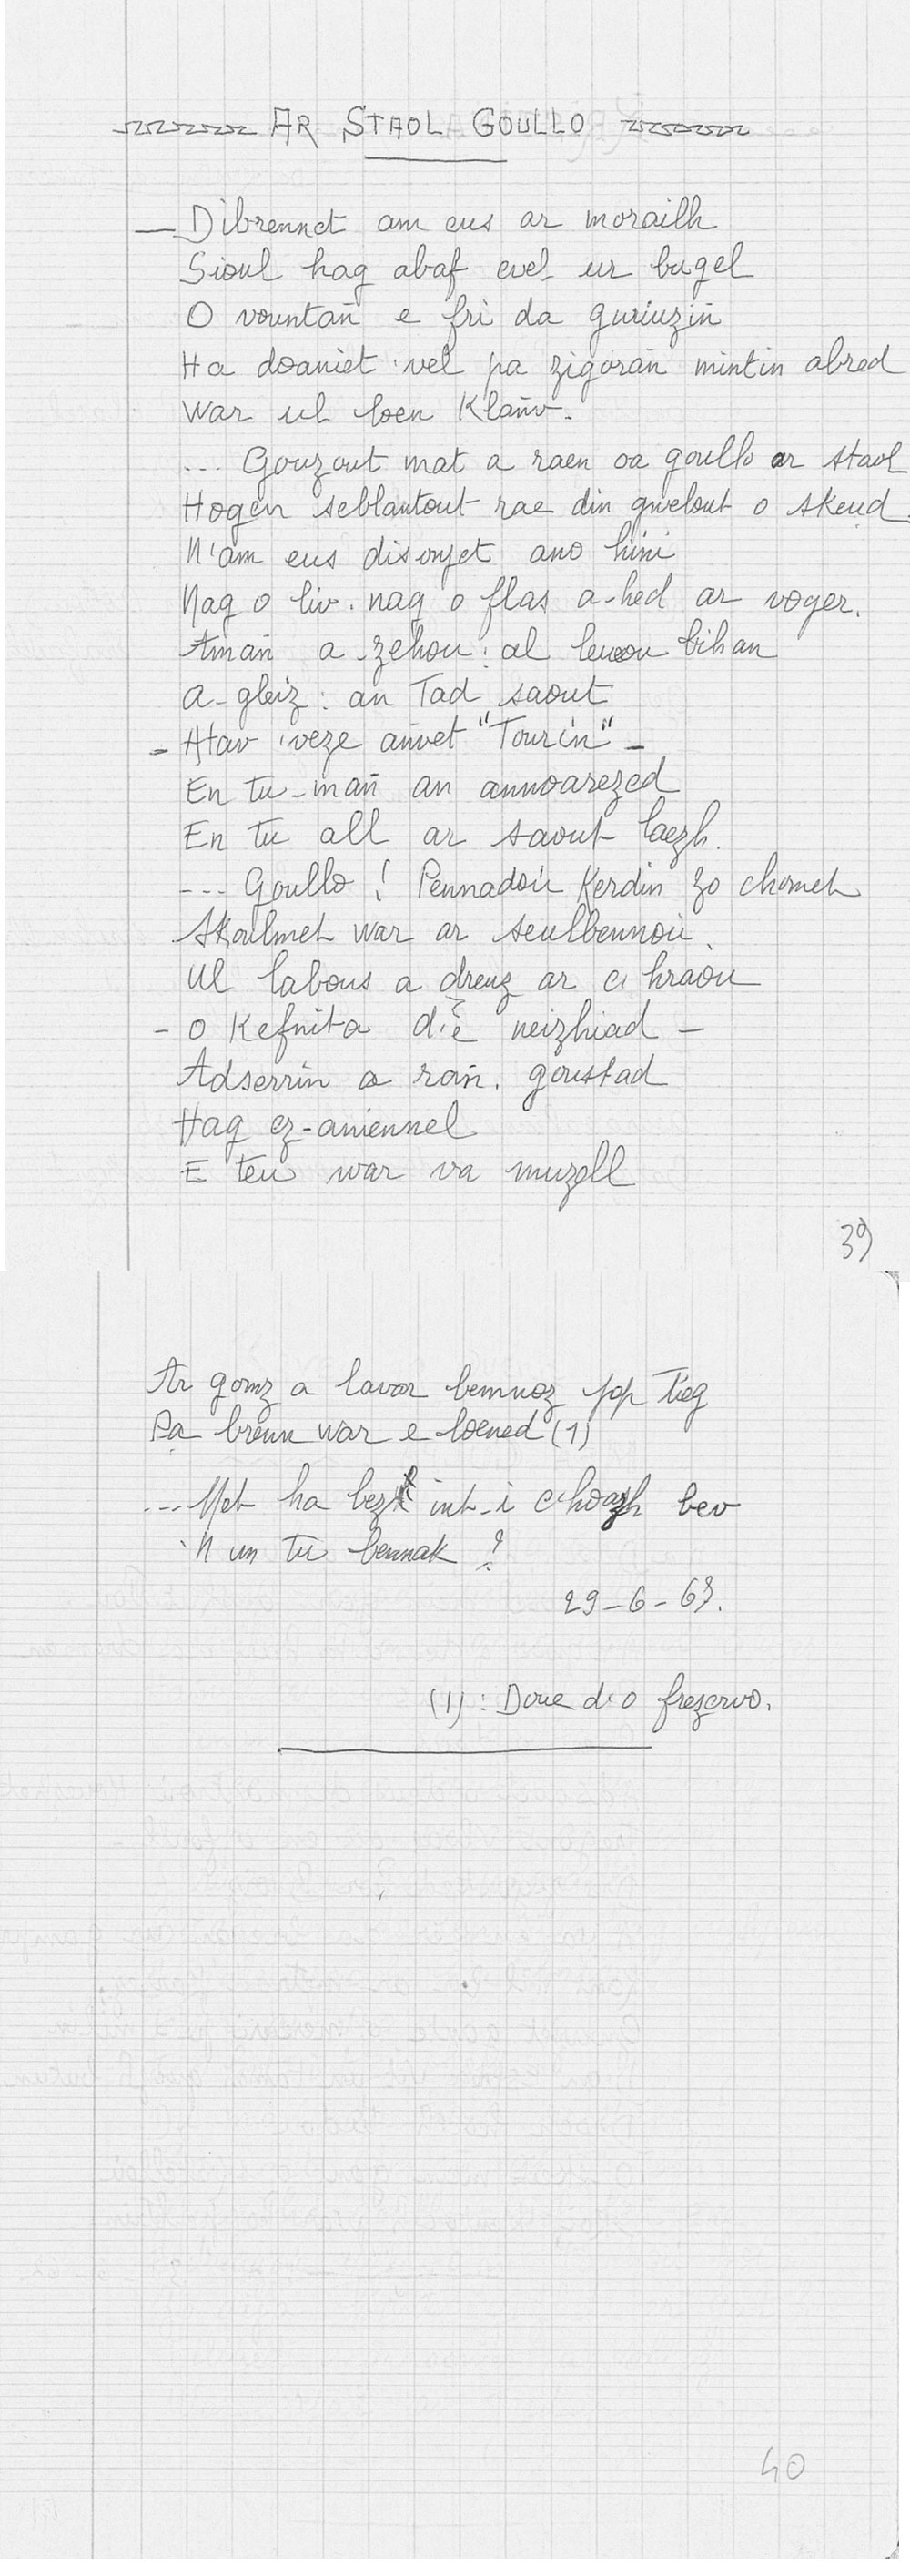 AR STAOL GOULLO
— Dibrennet am eus ar morailh
Sioul hag abaf evel ur bugel
O vountañ e fri da guriuzin
Ha doaniet 'vel pa zigorañ mintin abred
War ul loen klañv.
... Gouzout mat a raen oa goullo ar staol
Hogen seblantout rae din gwelout o skeud.
N'am eus disoñjet ano hini
Nag o liv. nag o flas a-hed ar voger.
Amañ a-zehou : al leueou bihan
a-gleiz : an Tad saout
- Atav 'veze añvet "Tourin" -
En tu-mañ an annoarezed
En tu all ar saout laezh.
--- Goullo ! Pennadoù kerdin zo chomet
Skoulmet war ar seulbennoù.
Ul labous a dreuz ar c'hraou
- o kefnita d'è neizhiad -
Adserrin a rañ. goustad
Hag ez-aniennel
E teu war va muzell
39
Ar gomz a lavar bemnoz pop tieg
Pa brenn war e loened (1)
... Met ha bez' int-i c'hoazh bev
'N un tu bennak ?
29-6-63.
(1) : Doue d'o frezervo.
40